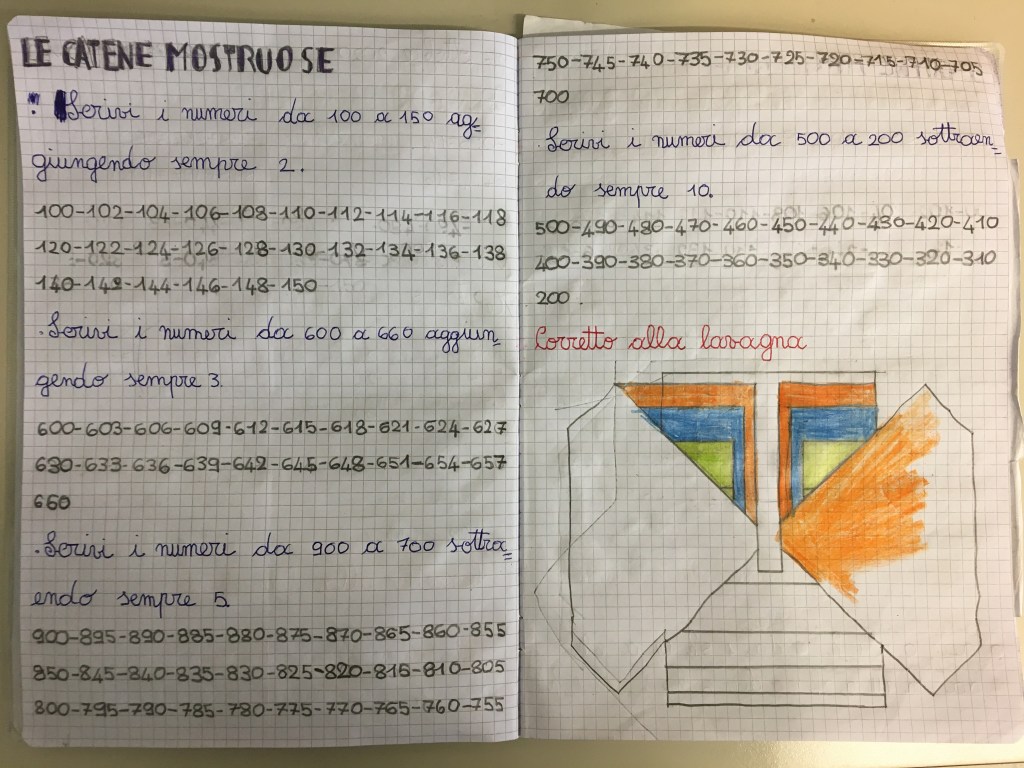 LE CATENE MOSTRUOSE
· Scrivi i numeri da 100 a 150 ag=
giungendo sempre 2.
100-102-104-106-108-110-112-114-116-118
120-122-124-126-128-130-132-134-136-138
140-142-144-146-148-150
·Scrivi i numeri da 600 a 660 aggiun=
gendo sempre 3.
600-603-606-609-612-615-618-621-624-627
630-633-636-639-642-645-648-651-654-657
660
·Scrivi i numeri da 900 a 700 sottra=
endo sempre 5.
900-895-890-885-880-875-870-865-860-855
850-845-840-835-830-825-820-815-810-805
800-795-790-785-780-775-770-765-760-755
750-745-740-735-730-725-720-715-710-705
700
·Scrivi i numeri da 500 a 200 sottraen=
do sempre 10.
500-490-480-470-460-450-440-430-420-410
400-390-380-370-360-350-340-330-320-310
200.
Corretto alla lavagna